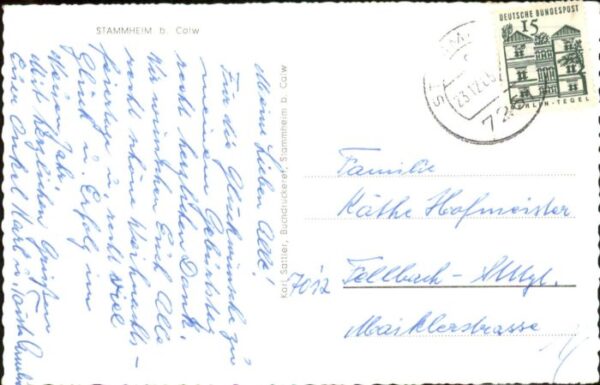 STAMMHEIM b. Calw
Meine Lieben Alle!
Für die Glückwünsche zu
meinem Geburtstag
recht herzlichen Dank.
Wir wünschen Euch Alle
recht schöne Weihnachts-
feiertage u. recht viel
Glück u. Erfolg im
Neuen Jahr.
Mit herzlichen Grüßen
Euer Onkel Karl u. Tante
Karl Sattler, Buchdruckerei, Stammheim b. Calw
DEUTSCHE BUNDESPOST
15
BERLIN-TEGEL
23.12.65
726
Familie
Käthe Hofmeister
7012 Fellbach-
Maiklerstrasse